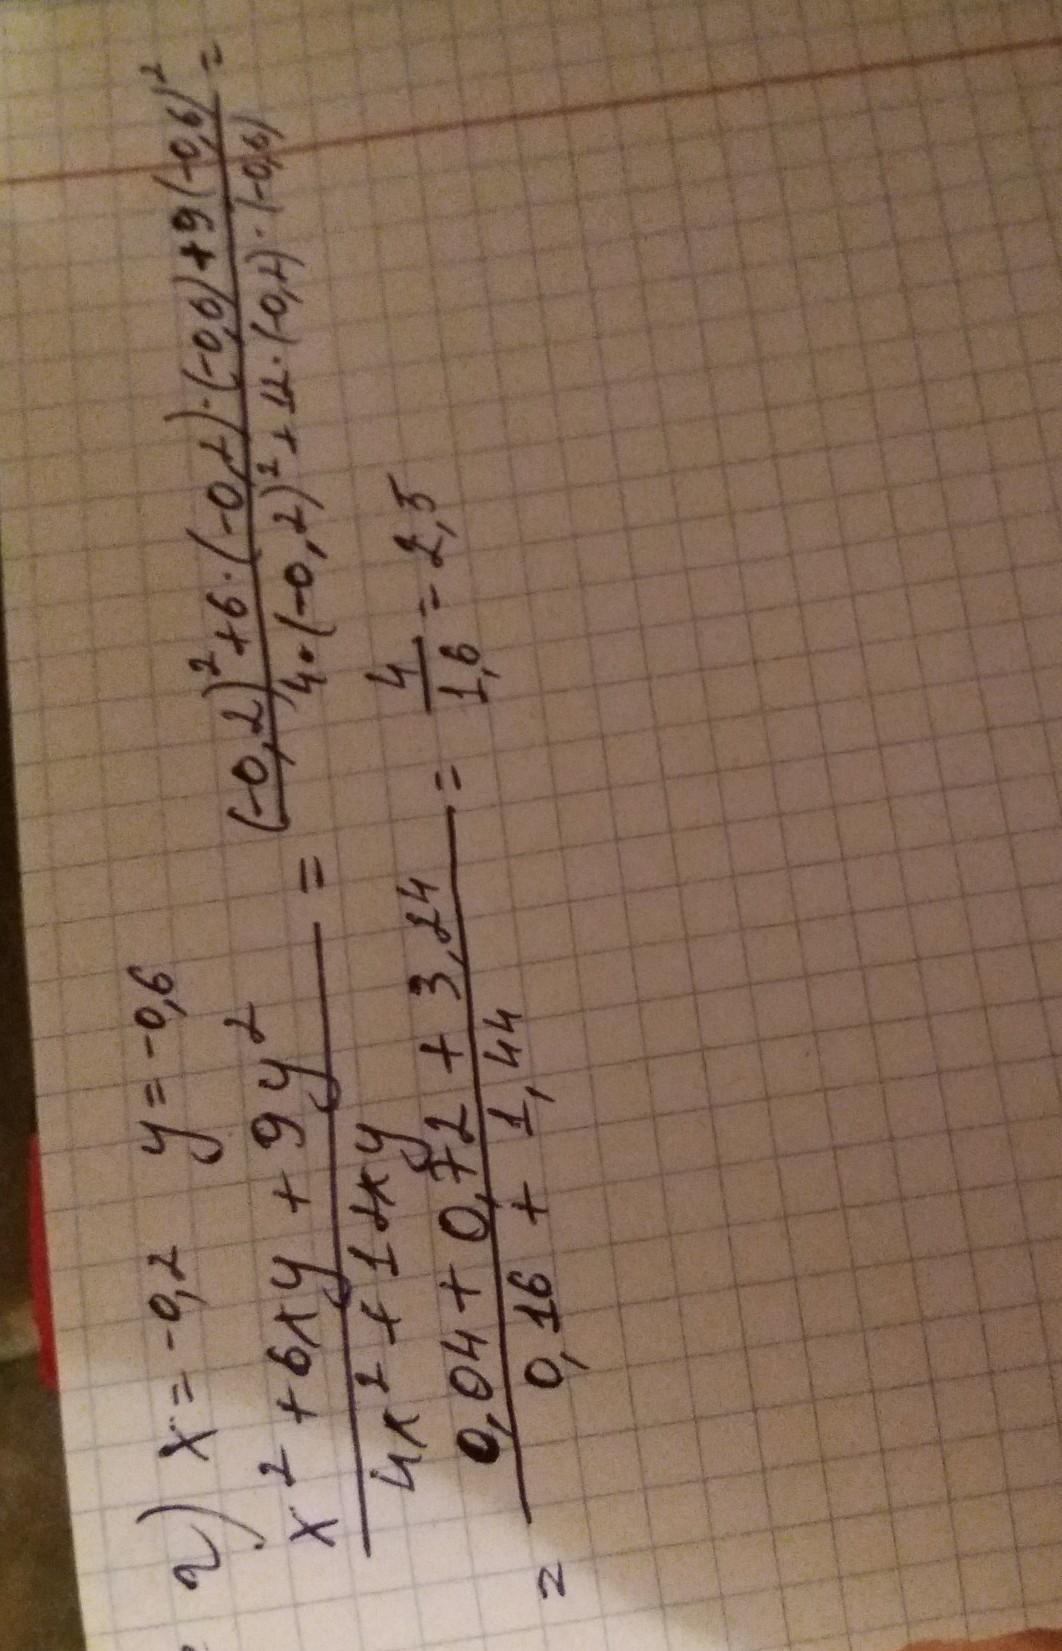 г) x = -0,2 y = -0,6
(x² + 6xy + 9y²)/(4x² + 12xy) = ((-0,2)² + 6·(-0,2)·(-0,6) + 9(-0,6)²)/(4·(-0,2)² + 12·(-0,2)·(-0,6)) =
= (0,04 + 0,72 + 3,24)/(0,16 + 1,44) = 4/1,6 = 2,5